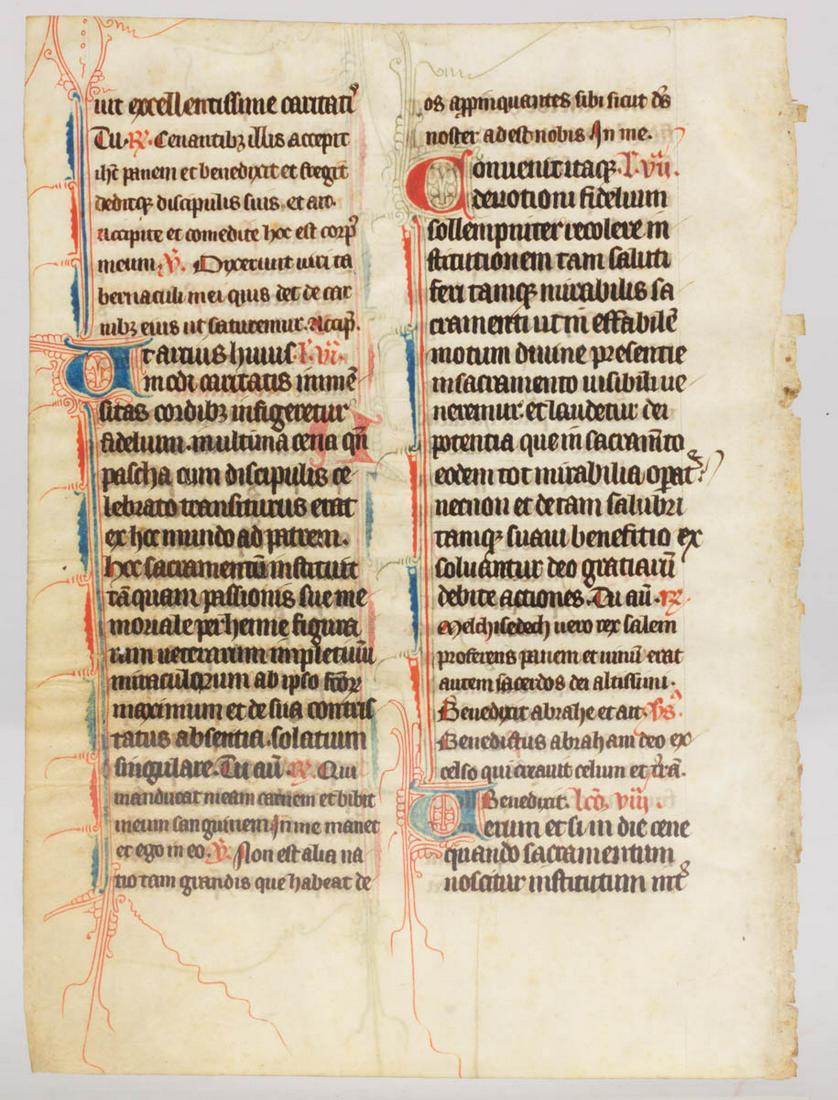 uit excellentissime caritatꝭ
Tu. ℟. Cenantibꝫ illis accepit
ihc̄ panem et benedixit et fregit
deditqꝫ discipulis suis. et ait.
accipite et comedite hoc est corpꝰ
meum. ℣. Dixerunt uiri ta
bernaculi mei quis det de car
nibꝫ eius ut saturemur. Accip̄.
Ut artius huius. l. vi.
modi caritatis immē
sitas cordibꝫ infigeretur
fidelium. in ultima cena qn̄
pascha cum discipulis ce
lebrato transiturus erat
ex hoc mundo ad patrem.
hoc sacramentū instituit
tāquam passionis sue me
moriale perhenne figura
rum ueterarum impletiuū
miraculorum ab ipso fc̄oꝝ
maximum et de sua contris
tatus absentia. solatium
singulare. Tu aū. ℟. Qui
manducat meam carnem et bibit
meum sanguinem In me manet
et ego in eo. ℣. Non est alia na
tio tam grandis que habeat de
os appinquantes sibi sicut ds̄
noster adest nobis. In me.
Conuenit itaqꝫ. l. vii.
deuotioni fidelium
sollempniter recolere in
stitutionem tam saluti
feri tamqꝫ mirabilis sa
cramenti ut in effabilē
motum diuine presentie
in sacramento uisibili ue
neremur. et laudetur dei
potentia que in sacram̄to
eodem tot mirabilia operat᷑.
necnon et de tam salubri
tamqꝫ suaui benefitio ex
soluantur deo gratiarū
debite acciones. Tu aū. ℟.
Melchisedech uero rex salem
proferens panem et uinū erat
autem sacerdos dei altissimi.
Benedixit abrahe et ait. v̄s.
Benedictus abraham deo ex
celso qui creauit celum et t̄rā.
Benedixit. lco᷎. viii.
Uerum et si in die cene
quando sacramentum
noscitur institutum int᷑